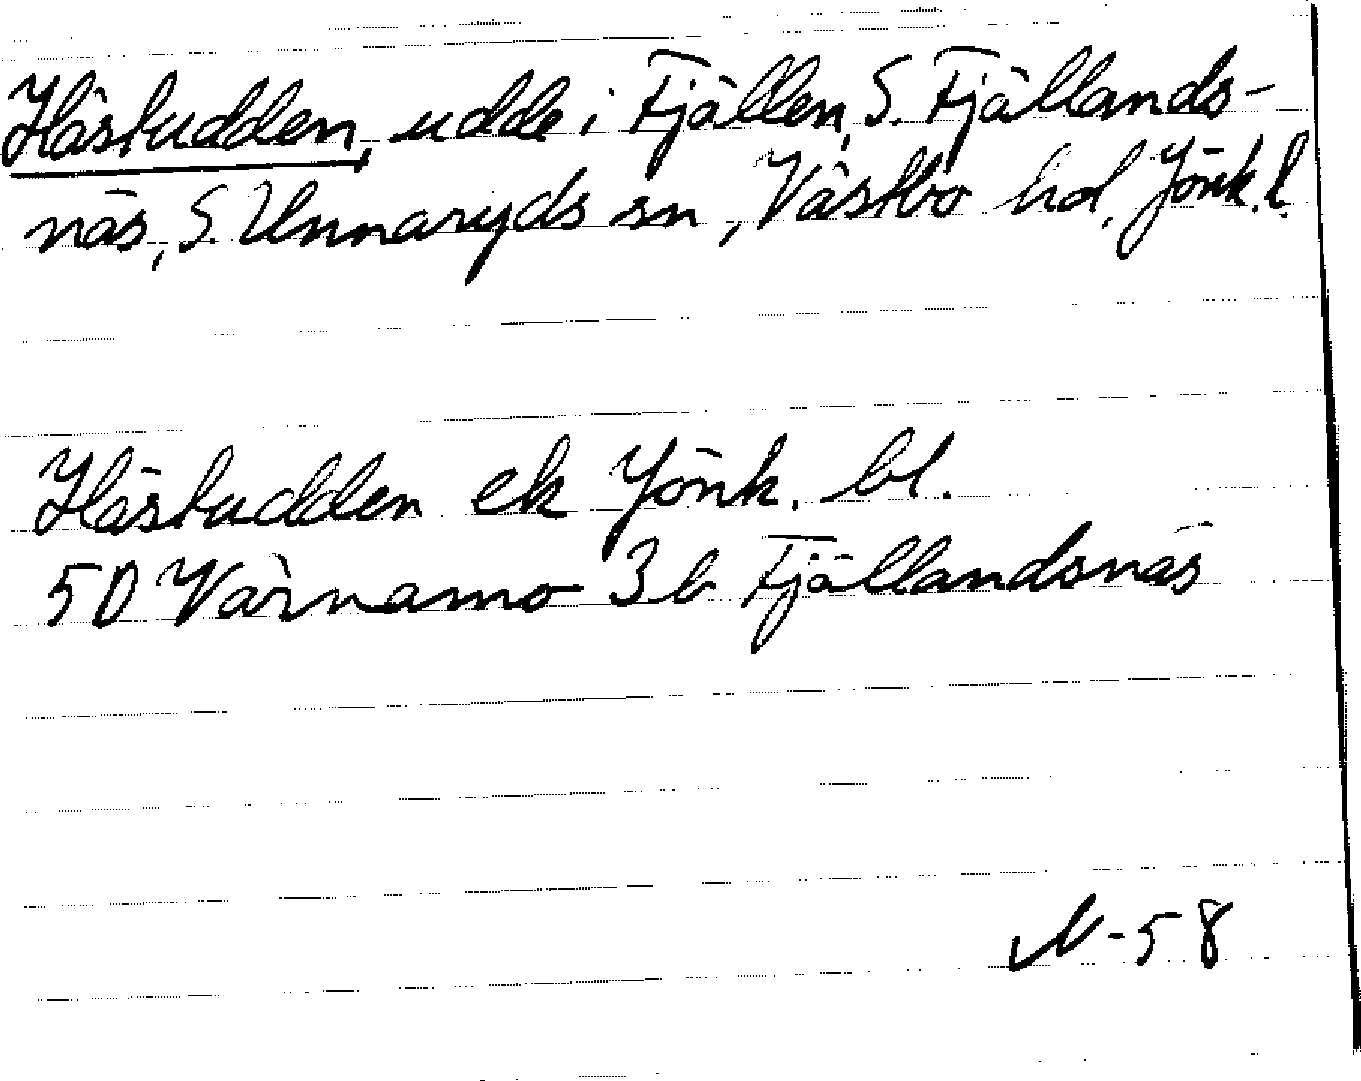 Hästudden, udde i Fjällen, S. Fjällands-
näs, S. Unnaryds sn, Västbo hd, Jönk. l.
Hästudden ek Jönk. bl.
5D Värnamo 3b Fjällandsnäs
N-58